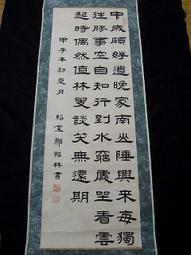 中歲頗好道晚家南山陲興來每獨
往勝事空自知行到水窮處坐看雲
起時偶然值林叟談笑無還期
甲子年初夏月